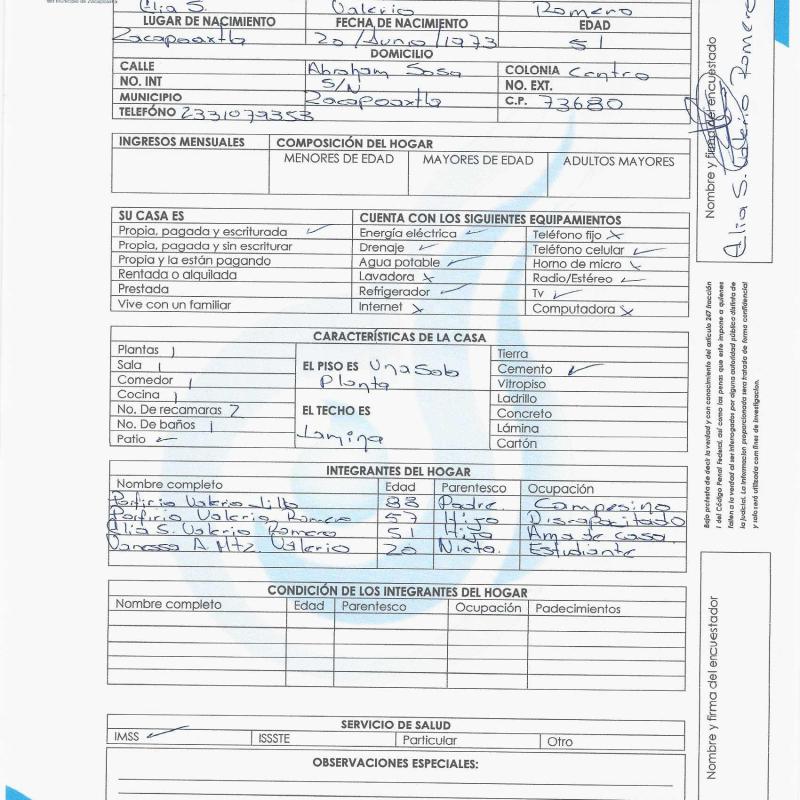 del Municipio de Zacapoaxtla
Elia S. Valerio Romero
LUGAR DE NACIMIENTO FECHA DE NACIMIENTO EDAD
Zacapoaxtla 20/Junio/1973 51
DOMICILIO
CALLE Abraham Sosa COLONIA Centro
NO. INT S/N NO. EXT.
MUNICIPIO Zacapoaxtla C.P. 73680
TELEFÓNO 2331079353
INGRESOS MENSUALES COMPOSICIÓN DEL HOGAR
MENORES DE EDAD MAYORES DE EDAD ADULTOS MAYORES
SU CASA ES CUENTA CON LOS SIGUIENTES EQUIPAMIENTOS
Propia, pagada y escriturada ✓ Energía eléctrica ✓ Teléfono fijo x
Propia, pagada y sin escriturar Drenaje ✓ Teléfono celular ✓
Propia y la están pagando Agua potable ✓ Horno de micro x
Rentada o alquilada Lavadora x Radio/Estéreo ✓
Prestada Refrigerador ✓ Tv ✓
Vive con un familiar Internet x Computadora x
CARACTERÍSTICAS DE LA CASA
Plantas 1
Sala 1
Comedor 1
Cocina 1
No. De recamaras 2
No. De baños 1
Patio ✓
EL PISO ES Una Sola
Planta
EL TECHO ES
Lamina
Tierra
Cemento ✓
Vitropiso
Ladrillo
Concreto
Lámina
Cartón
INTEGRANTES DEL HOGAR
Nombre completo Edad Parentesco Ocupación
Porfirio Valerio 83 Padre. Campesino
Porfirio Valerio Romero 57 Hijo Discapacitado
Elia S. Valerio Romero 51 Hija Ama de casa.
Vanessa A. Mtz. Valerio 20 Nieta. Estudiante
CONDICIÓN DE LOS INTEGRANTES DEL HOGAR
Nombre completo Edad Parentesco Ocupación Padecimientos
SERVICIO DE SALUD
IMSS ✓ ISSSTE Particular Otro
OBSERVACIONES ESPECIALES:
Nombre y firma del encuestado
Elia S. Valerio Romero
Bajo protesta de decir la verdad y con conocimiento del artículo 247 fracción
I del Código Penal Federal, así como las penas que este impone a quienes
falten a la verdad al ser interrogados por alguna autoridad pública distinta de
la judicial. La información proporcionada sera tratada de forma confidencial
y solo será utilizada con fines de investigacion.
Nombre y firma del encuestador